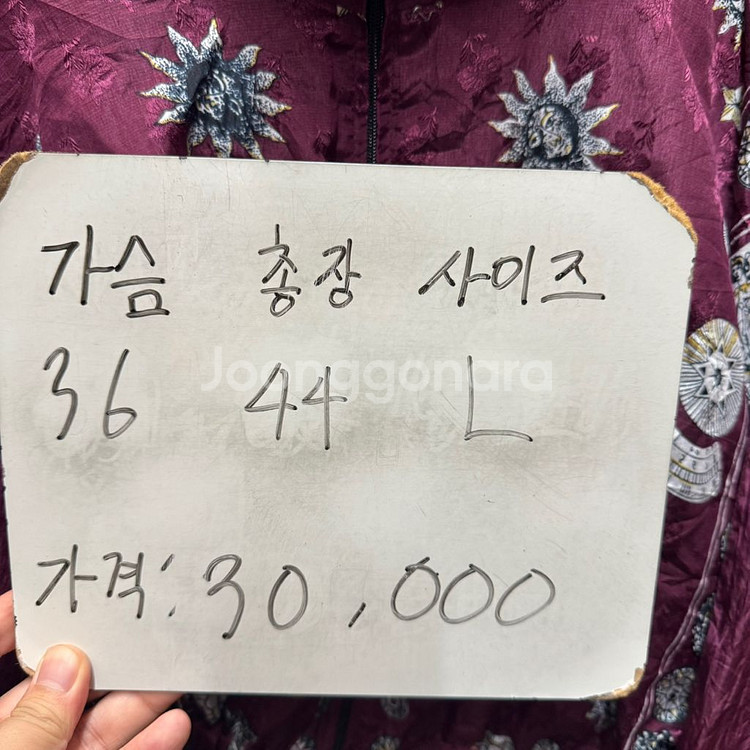 가슴 총장 사이즈
36 44 L
Joonggonara
가격: 30,000